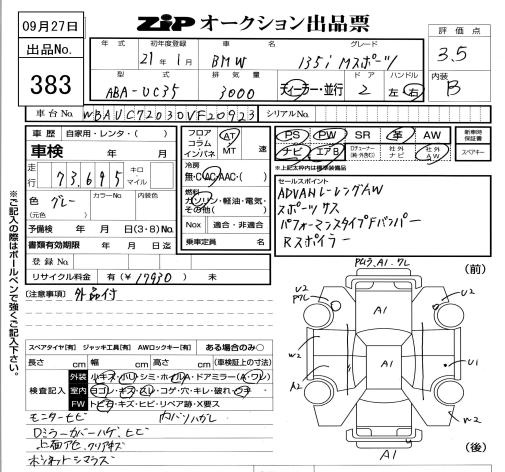 09月27日
出品No.
383
ZIP オークション出品票
評価点
3.5
内装
B
年式 初年度登録 車名 グレード
21年1月 BMW 135i Mスポーツ
型式 排気量 ドア ハンドル
ABA-UC35 3000 ディーラー・並行 2 左 右
車台No. WBAUC72030VF20923 シリアルNo.
車歴 自家用・レンタ・( )
車検 年 月
走行 73,695 キロ マイル
色 グレー カラーNo. 内装色
(元色)
予備検 年 月 日(3・6)No.
書類有効期限 年 月 日迄
登録No.
リサイクル料金 有(¥17930) 未
フロア コラム インパネ AT MT 速
冷房
無・C(AC/AAC・( )
燃料
ガソリン・軽油・電気・その他( )
Nox 適合・非適合
乗車定員 名
PS PW SR 革 AW
ナビ エアB Dチューナー 社外ナビ 社外AW
新車時保証書
スペアキー
※上記太枠内は標準装備品
セールスポイント
ADVANレーシングAW
スポーツサス
パフォーマンスタイプFバンパー
Rスポイラー
[注意事項] 外品付
スペアタイヤ[有] ジャッキ工具[有] AWロックキー[有] ある場合のみ○
長さ cm 幅 cm 高さ cm (車検証上の寸法)
検査記入
外装 小キズ・小凹・シミ・ホイルA・ドアミラー(A・ワレ)
室内 ヨゴレ・キズ・スレ・コゲ・穴・キレ・破れ・ウキ
FW トビ石・キズ・ヒビ・リペア跡・X要ス
モニターヒビ 内バリハガレ
Dミラーカバーハゲ、ヒビ
上面アセ、クリアキズ
ボンネットシマラズ
※ご記入の際はボールペンで強くご記入下さい。
(前)
A1
U2
A1
W2
U1
A1
A2
W2
A1
(後)